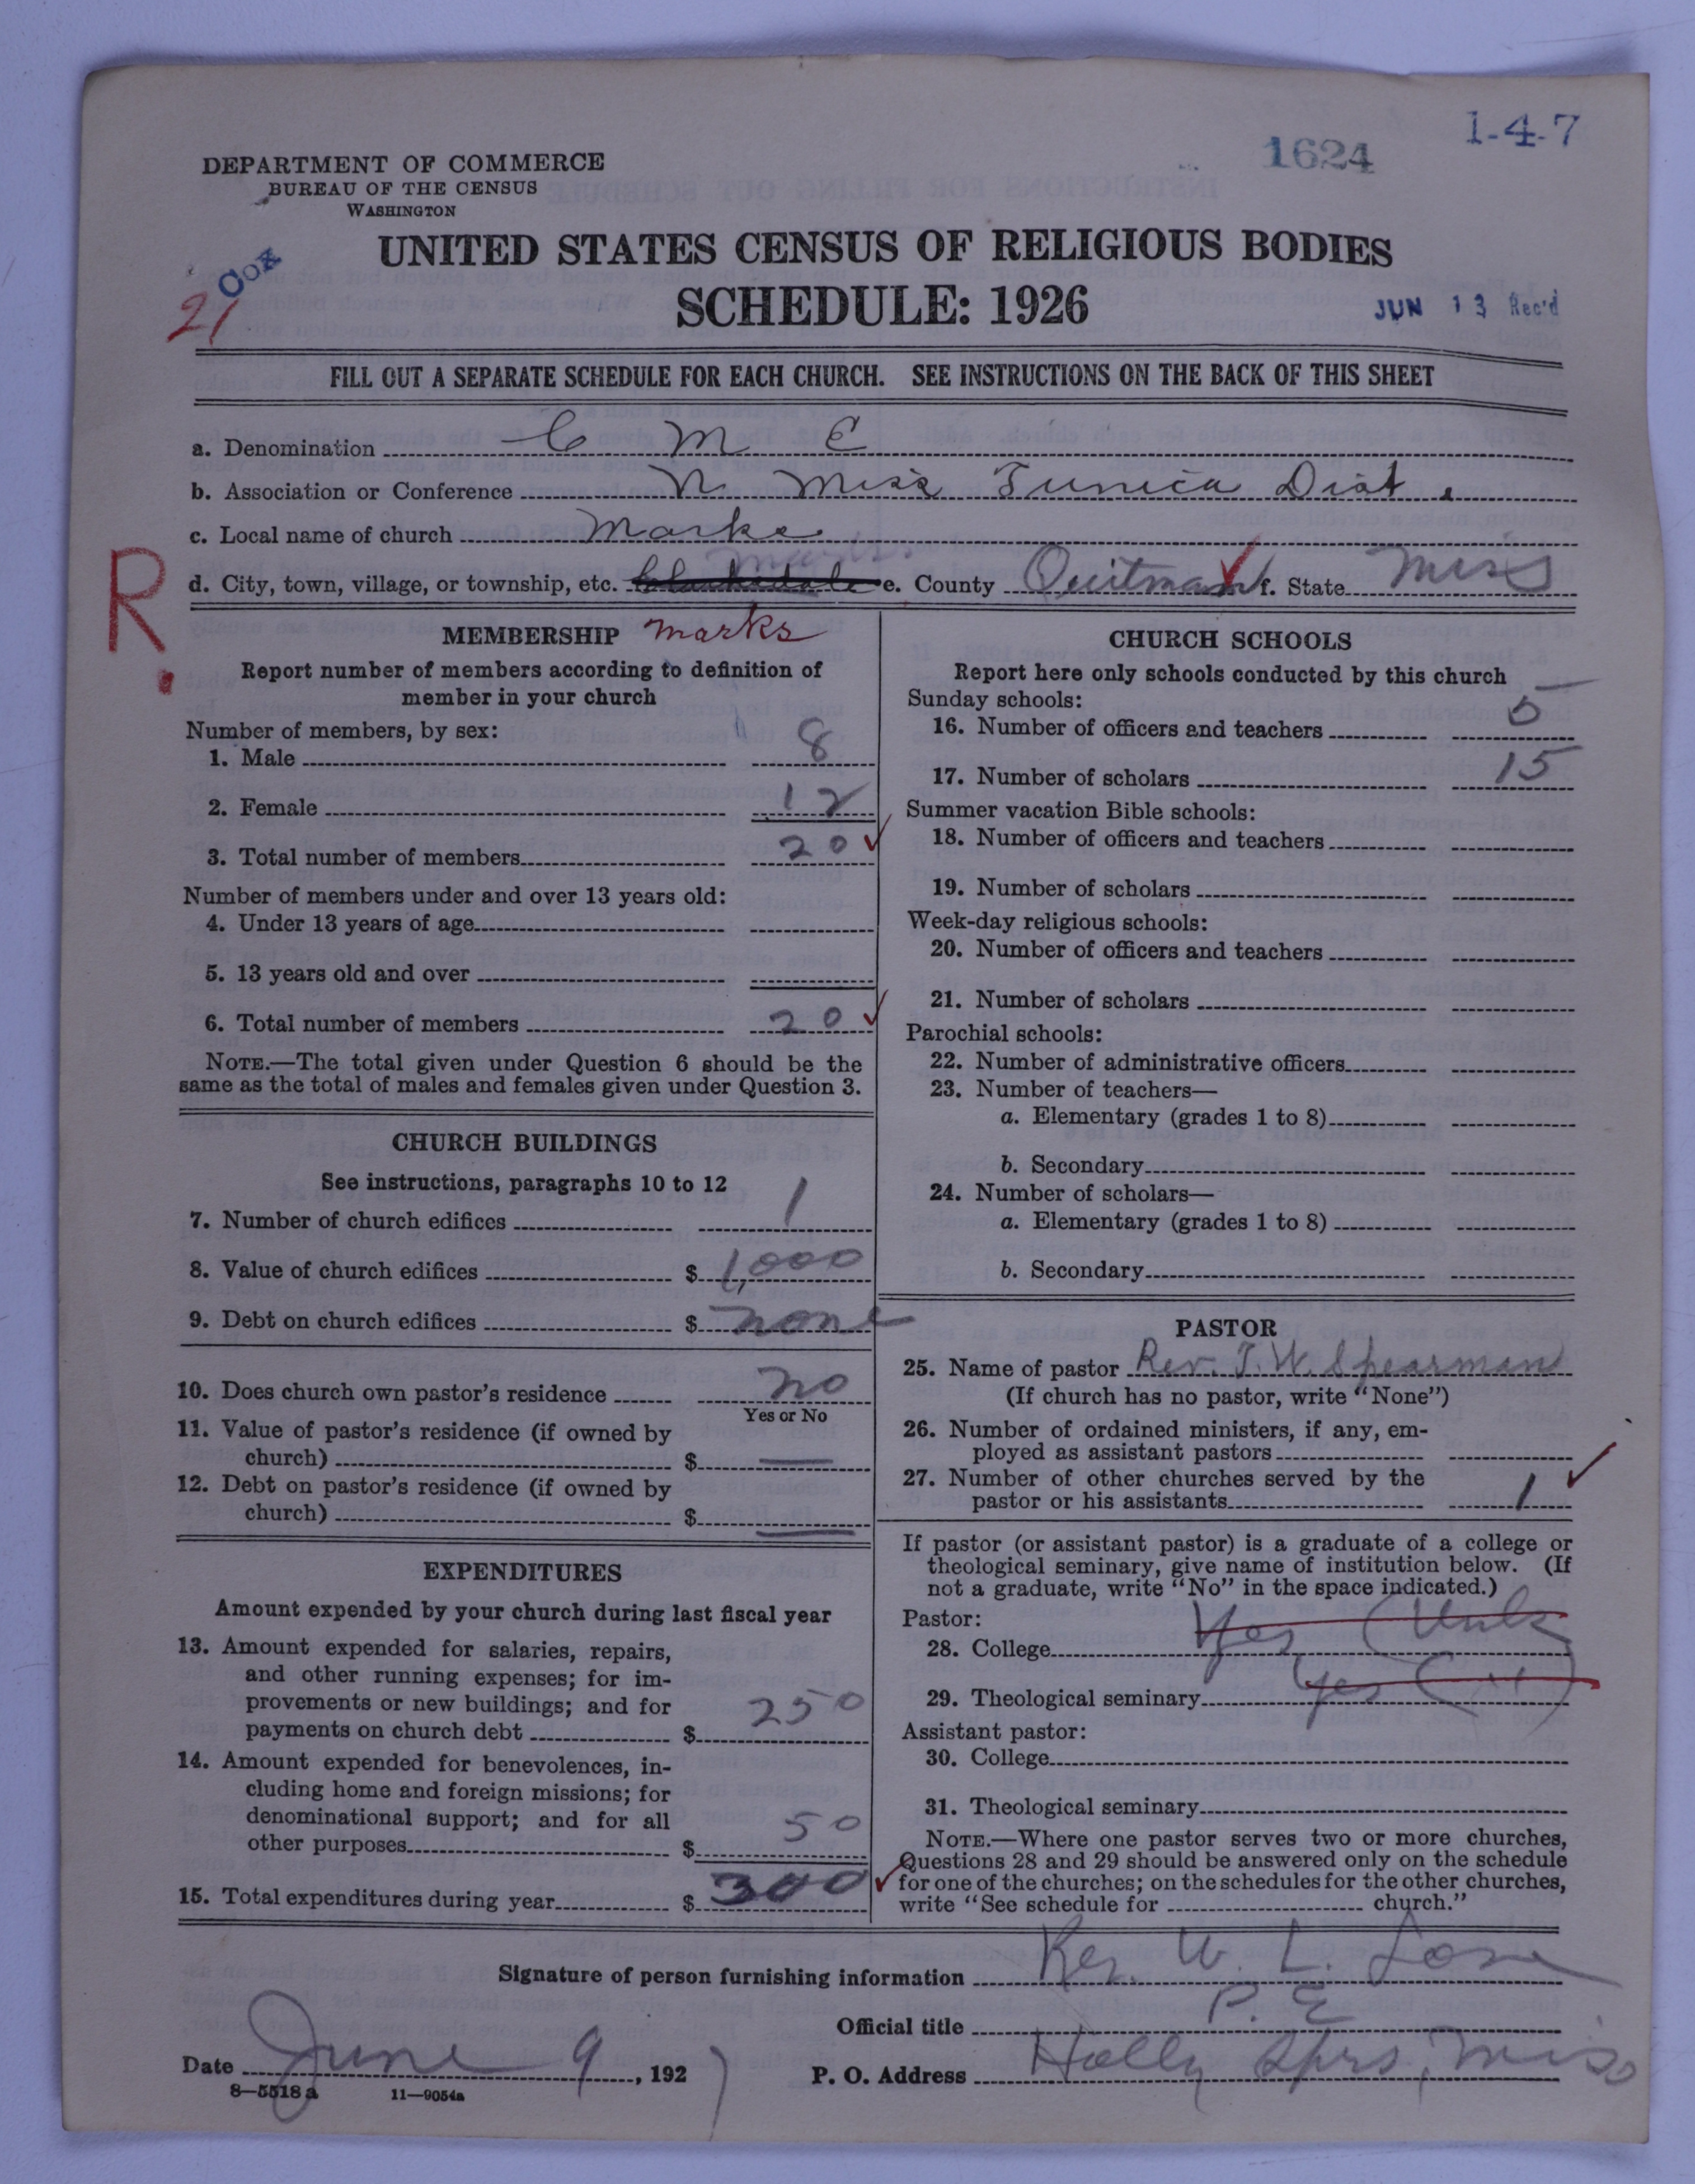 1-4-7
1624
DEPARTMENT OF COMMERCE
BUREAU OF THE CENSUS
WASHINGTON
Cox
UNITED STATES CENSUS OF RELIGIOUS BODIES
21
SCHEDULE: 1926
JUN 13 Rec'd
FILL OUT A SEPARATE SCHEDULE FOR EACH CHURCH. SEE INSTRUCTIONS ON THE BACK OF THIS SHEET
a. Denomination C M E
b. Association or Conference N. Miss Tunica Dist.
c. Local name of church Marks
Marks
R.
d. City, town, village, or township, etc. Clarksdale e. County Quitman f. State Miss
MEMBERSHIP Marks
Report number of members according to definition of
member in your church
Number of members, by sex:
1. Male 8
2. Female 12
3. Total number of members 20
Number of members under and over 13 years old:
4. Under 13 years of age
5. 13 years old and over
6. Total number of members 20
NOTE.—The total given under Question 6 should be the
same as the total of males and females given under Question 3.
CHURCH BUILDINGS
See instructions, paragraphs 10 to 12
7. Number of church edifices 1
8. Value of church edifices $ 1,000
9. Debt on church edifices $ none
10. Does church own pastor's residence no
Yes or No
11. Value of pastor's residence (if owned by
church) $ —
12. Debt on pastor's residence (if owned by
church) $ —
EXPENDITURES
Amount expended by your church during last fiscal year
13. Amount expended for salaries, repairs,
and other running expenses; for im-
provements or new buildings; and for
payments on church debt $ 250
14. Amount expended for benevolences, in-
cluding home and foreign missions; for
denominational support; and for all
other purposes $ 50
15. Total expenditures during year $ 300
CHURCH SCHOOLS
Report here only schools conducted by this church
Sunday schools:
16. Number of officers and teachers 5
17. Number of scholars 15
Summer vacation Bible schools:
18. Number of officers and teachers
19. Number of scholars
Week-day religious schools:
20. Number of officers and teachers
21. Number of scholars
Parochial schools:
22. Number of administrative officers
23. Number of teachers—
a. Elementary (grades 1 to 8)
b. Secondary
24. Number of scholars—
a. Elementary (grades 1 to 8)
b. Secondary
PASTOR
25. Name of pastor Rev. J. W. Spearman
(If church has no pastor, write "None")
26. Number of ordained ministers, if any, em-
ployed as assistant pastors
27. Number of other churches served by the
pastor or his assistants 1
If pastor (or assistant pastor) is a graduate of a college or
theological seminary, give name of institution below. (If
not a graduate, write "No" in the space indicated.)
Pastor:
28. College Yes (Unk
29. Theological seminary Yes ( )
Assistant pastor:
30. College
31. Theological seminary
NOTE.—Where one pastor serves two or more churches,
Questions 28 and 29 should be answered only on the schedule
for one of the churches; on the schedules for the other churches,
write "See schedule for church."
Signature of person furnishing information Rev. W. L.
Official title P. E
Date June 9, 1927
P. O. Address Holly Sprs, Miss
8—5518a 11—9054a